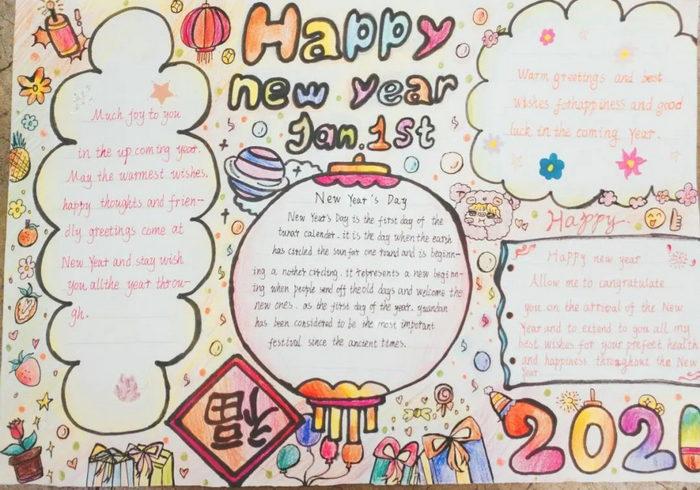 Happy
new year
Jan.1st
Much joy to you
in the up coming year.
May the warmest wishes,
happy thoughts and frien-
dly greetings come at
New Year and stay wish
you all the year throu-
gh.
New Year's Day
New Year's Day is the first day of the
lunar calender. it is the day when the earth
has circled the sun for one round and is beginn-
ing a nother circling. it represents a new beginn-
ing when people send off the old days and welcome the
new ones. as the first day of the year. yuandan
has been considered to be the most important
festival since the ancient times.
福
Warm greetings and best
wishes for happiness and good
luck in the coming year.
Happy
Happy new year
Allow me to cangratulate
you on the arrival of the New
Year and to extend to you all my
best wishes for your prefeet health
and happiness throughout the New
Year
202